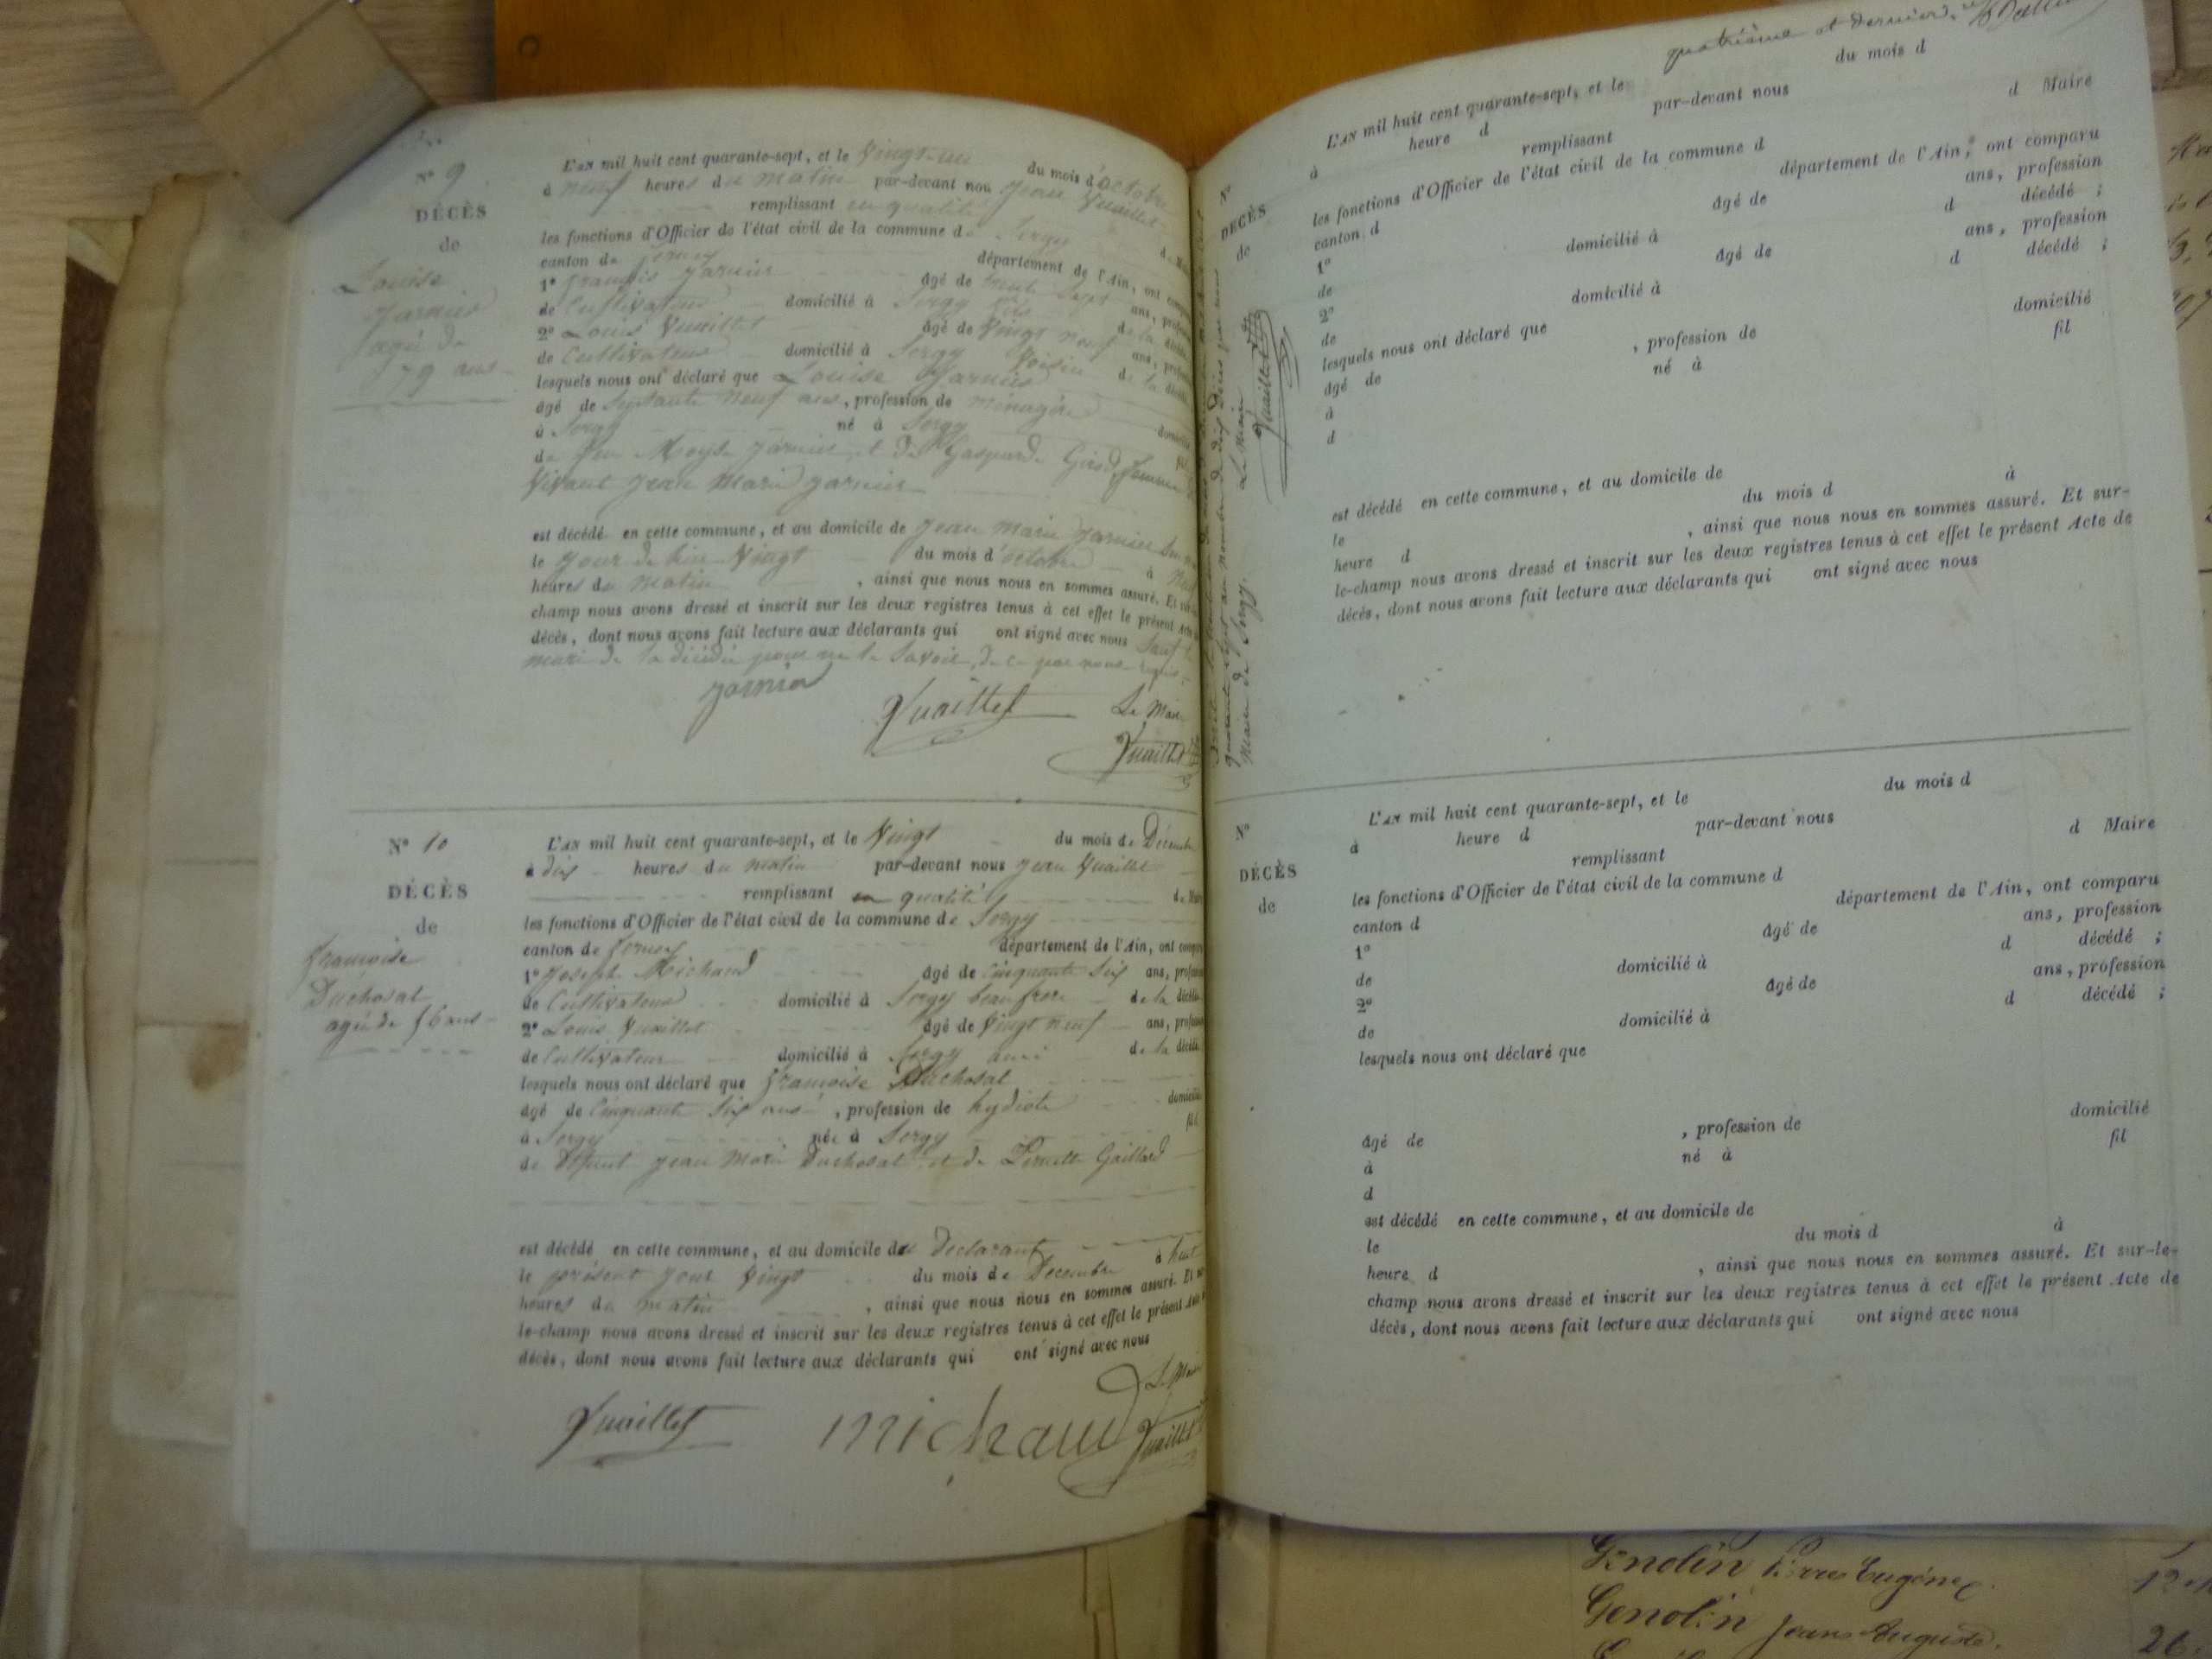 N° 9
DÉCÈS
de
Louise
Jarnier
agé de
79 ans
L'AN mil huit cent quarante-sept, et le Vingt-un du mois d'octobre
à neuf heures du matin par-devant nou Jean Vuaillet
remplissant en qualité d
les fonctions d'Officier de l'état civil de la commune de Sergy
canton de ferney département de l'Ain, ont
1° françois Jarnier âgé de trente sept ans,
de Cultivateur domicilié à Sergy de la
2° Louis Vuaillet âgé de Vingt neuf ans,
de Cultivateur domicilié à Sergy Voisin de la
lesquels nous ont déclaré que Louise Jarnier
âgé de Septante neuf ans, profession de ménagère
à Sergy né à Sergy
de feu Moyse Jarnier et de Gasparde Girod, femme
Vivant Jean Marie Jarnier
est décédé en cette commune, et au domicile de Jean Marie Jarnier
le Jour de hier Vingt du mois d'octobre à
heures du matin, ainsi que nous nous en sommes assuré. Et
champ nous avons dressé et inscrit sur les deux registres tenus à cet effet le présent Acte
décès, dont nous avons fait lecture aux déclarants qui ont signé avec nous Sauf
mari de la décédée pour ne le Savoir, de ce par nous requis
Jarnier
Vuaillet
Le Maire
Vuaillet
N° 10
DÉCÈS
de
françoise
Duchosal
agée de 56 ans
L'AN mil huit cent quarante-sept, et le Vingt du mois de Décembre
à dix heures du matin par-devant nous Jean Vuaillet
remplissant en qualité de
les fonctions d'Officier de l'état civil de la commune de Sergy
canton de ferney département de l'Ain, ont
1° Joseph Michaud âgé de Cinquante Six ans,
de Cultivateur domicilié à Sergy beau frere de la décédée
2° Louis Vuaillet âgé de Vingt neuf ans,
de Cultivateur domicilié à Sergy ami de la décédée
lesquels nous ont déclaré que françoise Duchosal
âgé de Cinquante Six ans, profession de hydiote domicilié
à Sergy née à Sergy fil
de Defunt Jean Marie Duchosal et de Pernette Gaillard
est décédé en cette commune, et au domicile du Declarant
le présent jour Vingt du mois de Decembre à huit
heures du matin, ainsi que nous nous en sommes assuré. Et
le-champ nous avons dressé et inscrit sur les deux registres tenus à cet effet le présent Acte
décès, dont nous avons fait lecture aux déclarants qui ont signé avec nous
Le Maire
Vuaillet
michaud
Vuaillet
quarante sept au nombre de dix Décès par nous
Maire de Sergy.
Le Maire
Vuaillet
quatrième et dernier.
N°
DÉCÈS
de
L'AN mil huit cent quarante-sept, et le du mois d
à heure d par-devant nous
remplissant d Maire
les fonctions d'Officier de l'état civil de la commune d
canton d département de l'Ain, ont comparu
1° âgé de ans, profession
de domicilié à d décédé ;
2° âgé de ans, profession
de domicilié à d décédé ;
lesquels nous ont déclaré que
âgé de , profession de domicilié
à né à fil
d
est décédé en cette commune, et au domicile de
le du mois d à
heure d , ainsi que nous nous en sommes assuré. Et sur-
le-champ nous avons dressé et inscrit sur les deux registres tenus à cet effet le présent Acte de
décès, dont nous avons fait lecture aux déclarants qui ont signé avec nous
N°
DÉCÈS
de
L'AN mil huit cent quarante-sept, et le du mois d
à heure d par-devant nous
remplissant d Maire
les fonctions d'Officier de l'état civil de la commune d
canton d département de l'Ain, ont comparu
1° âgé de ans, profession
de domicilié à d décédé ;
2° âgé de ans, profession
de domicilié à d décédé ;
lesquels nous ont déclaré que
âgé de , profession de domicilié
à né à fil
d
est décédé en cette commune, et au domicile de
le du mois d à
heure d , ainsi que nous nous en sommes assuré. Et sur-le-
champ nous avons dressé et inscrit sur les deux registres tenus à cet effet le présent Acte de
décès, dont nous avons fait lecture aux déclarants qui ont signé avec nous
Genolin Pierre Eugène
Genolin Jean Auguste.
26